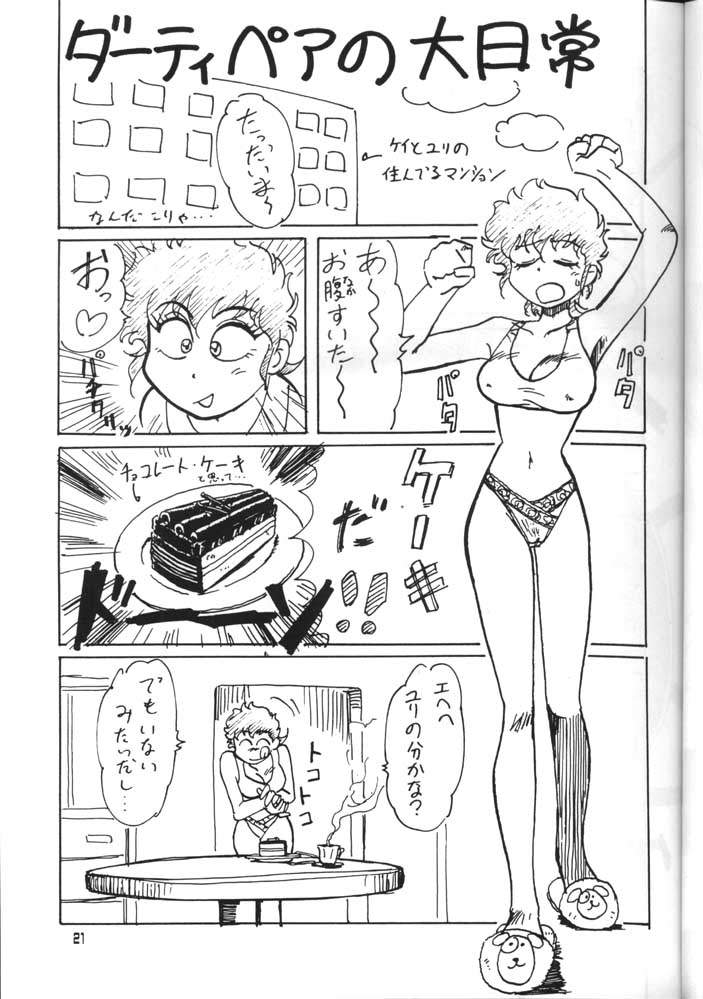 ダーティペアの大日常
たっだいま〜
ケイとユリの
住んでるマンション
なんだこりゃ…
あ〜〜〜
お腹すいた〜〜
なか
パタ
パタ
おっ♡
パタパタッ
ケーキ
だ!!
チョコレート・ケーキ
と思って…
ドーーン
エヘヘ
ユリの分かな?
トコ
トコ
でもいない
みたいだし…
21